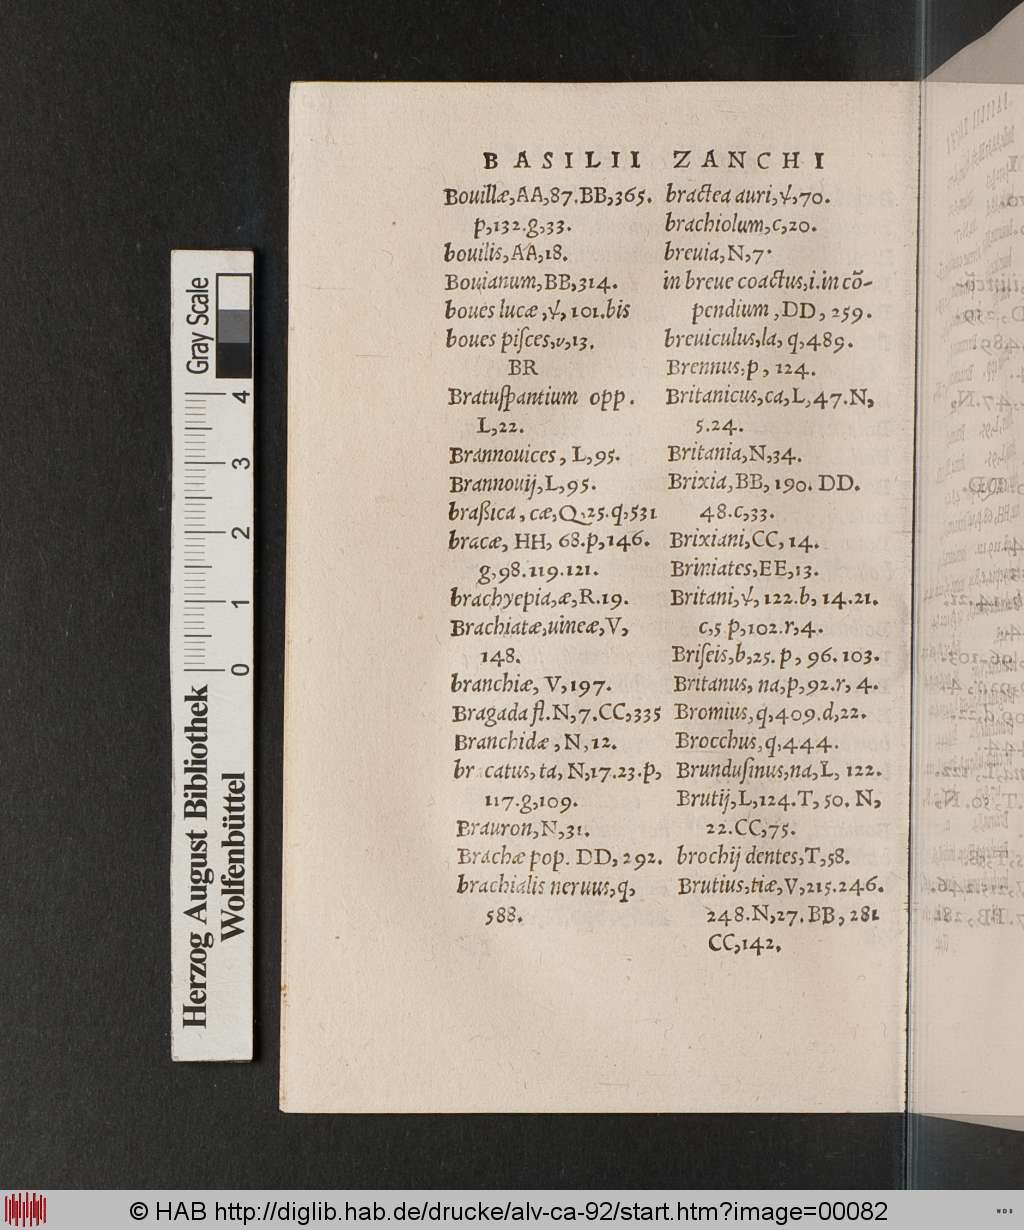 BASILII ZANCHI
Bouillæ,AA,87.BB,365.
p,132.g,33.
bouilis,AA,18.
Bouianum,BB,314.
boues lucæ,ψ,101.bis
boues piſces,υ,13.
BR
Bratuſpantium opp.
L,22.
Brannouices, L,95.
Brannouij,L,95.
braßica, cæ,Q,25.q,531
bracæ, HH, 68.p,146.
g,98.119.121.
brachyepia,æ,R.19.
Brachiatæ,uineæ,V,
148.
branchiæ, V,197.
Bragada fl.N,7.CC,335
Branchidæ, N,12.
br catus, ta, N,17.23.p,
117.g,109.
Brauron,N,31.
Brachæ pop. DD, 292.
brachialis neruus,q,
588.
bractea auri,ψ,70.
brachiolum,c,20.
breuia,N,7.
in breue coactus,i.in cō-
pendium, DD, 259.
breuiculus,la, q,489.
Brennus,p, 124.
Britanicus,ca,L,47.N,
5.24.
Britania,N,34.
Brixia,BB, 190. DD.
48.c,33.
Brixiani,CC, 14.
Briniates,EE,13.
Britani,ψ, 122.b, 14.21.
c,5 p,102.r,4.
Briſeis,b,25. p, 96. 103.
Britanus, na,p,92.r, 4.
Bromius, q,409.d,22.
Brocchus,q,444.
Brunduſinus,na,L, 122.
Brutij,L,124.T, 50. N,
22.CC,75.
brochij dentes,T,58.
Brutius,tiæ,V,215.246.
248.N,27. BB, 281
CC,142.
Gray Scale
4
3
2
1
0
Herzog August Bibliothek
Wolfenbüttel
© HAB http://diglib.hab.de/drucke/alv-ca-92/start.htm?image=00082